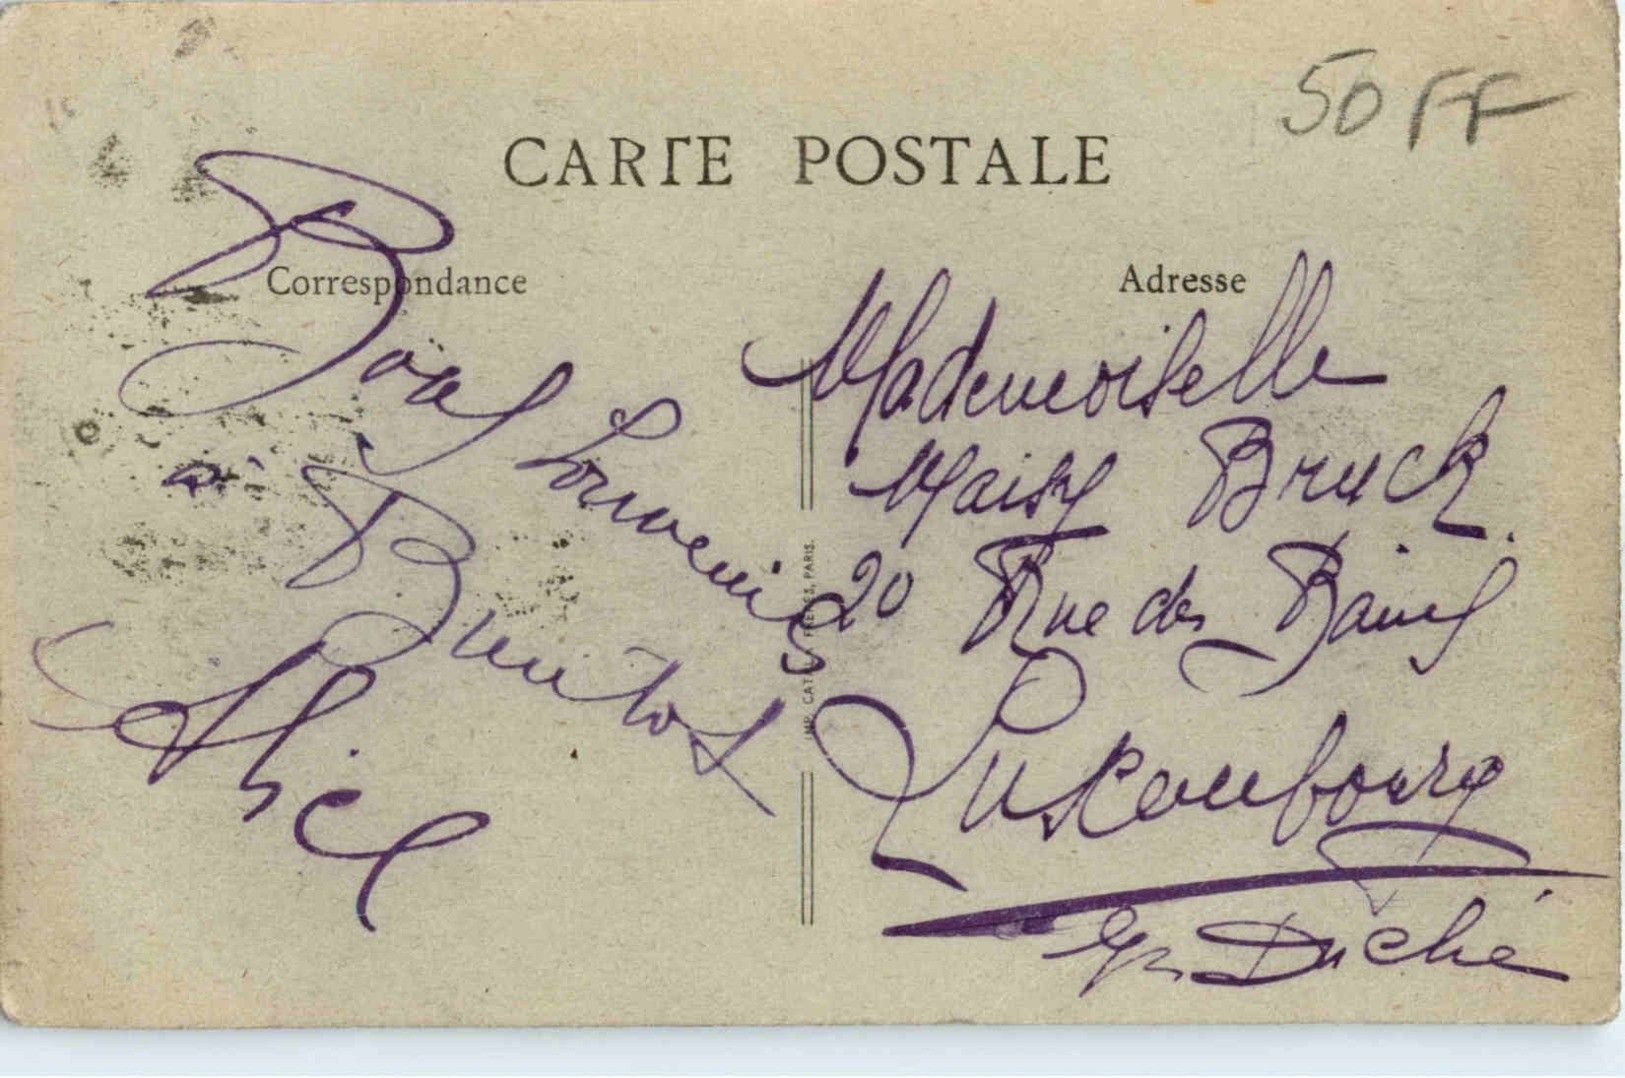 50 FF
CARTE POSTALE
Correspondance
Bons
Souvenirs
à
Alice
Adresse
Mademoiselle
Maisy Bruck.
20 Rue des Bains
Luxembourg
Gr. Duché
PARIS.